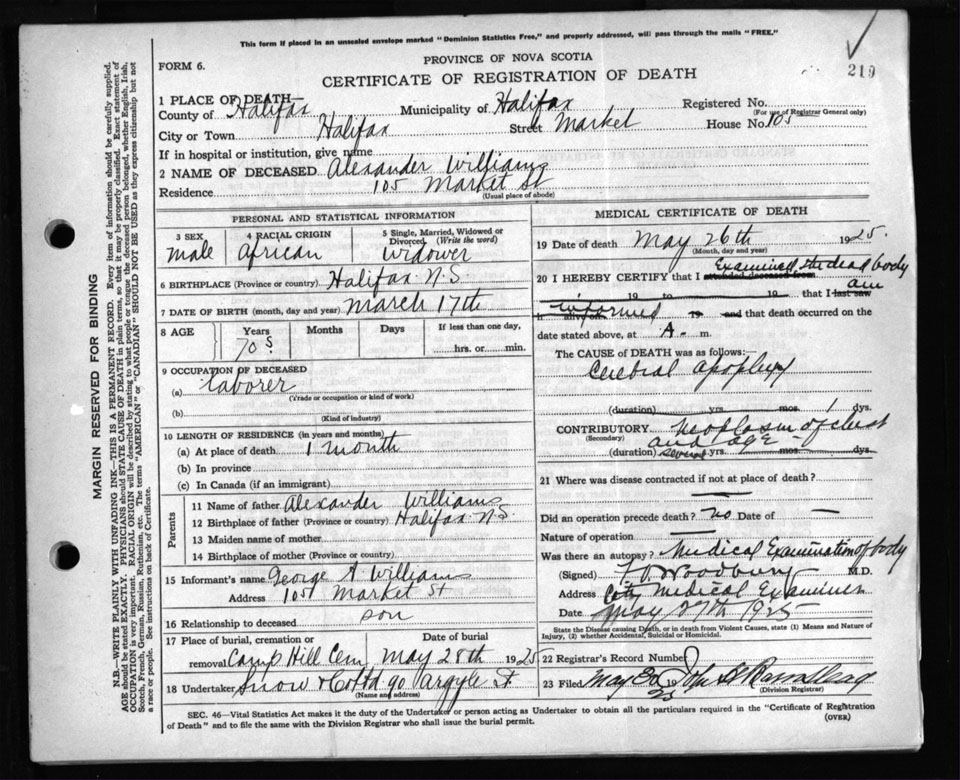 This form if placed in an unsealed envelope marked "Dominion Statistics Free," and properly addressed, will pass through the mails "FREE."
FORM 6.
PROVINCE OF NOVA SCOTIA
219
CERTIFICATE OF REGISTRATION OF DEATH
1 PLACE OF DEATH—
County of Halifax Municipality of Halifax Registered No.
(For use of Registrar General only)
City or Town Halifax Street Market House No. 105
If in hospital or institution, give name
2 NAME OF DECEASED Alexander Williams
Residence 105 Market St
(Usual place of abode)
PERSONAL AND STATISTICAL INFORMATION
3 SEX 4 RACIAL ORIGIN 5 Single, Married, Widowed or Divorced, (Write the word)
male African Widower
6 BIRTHPLACE (Province or country) Halifax N.S
7 DATE OF BIRTH (month, day and year) March 17th
8 AGE Years Months Days If less than one day,
70s hrs. or min.
9 OCCUPATION OF DECEASED
(a) Laborer
(Trade or occupation or kind of work)
(b)
(Kind of industry)
10 LENGTH OF RESIDENCE (in years and months)
(a) At place of death 1 month
(b) In province
(c) In Canada (if an immigrant)
Parents
11 Name of father Alexander Williams
12 Birthplace of father (Province or country) Halifax N.S.
13 Maiden name of mother
14 Birthplace of mother (Province or country)
15 Informant's name George A Williams
Address 105 Market St
16 Relationship to deceased son
17 Place of burial, cremation or Date of burial
removal Camp Hill Cem May 28th 1925
18 Undertaker Snow & Co Ltd 90 Argyle St
(Name and address)
MEDICAL CERTIFICATE OF DEATH
19 Date of death May 26th 1925.
(Month, day and year)
20 I HEREBY CERTIFY that I attended deceased from Examined the dead body
19 to 19 that I last saw am
h alive on informed 19 and that death occurred on the
date stated above, at A. m.
The CAUSE OF DEATH was as follows:—
Cerebral apoplexy
(duration) yrs. mos. 1 dys.
CONTRIBUTORY Neoplasm of chest
(Secondary) and age
(duration) several yrs. mos. dys.
21 Where was disease contracted if not at place of death?
Did an operation precede death? no Date of —
Nature of operation —
Was there an autopsy? Medical Examination of body
(Signed) Woodbury M.D.
Address City Medical Examiner
Date May 27th 1925
State the Disease causing Death, or in death from Violent Causes, state (1) Means and Nature of Injury, (2) whether Accidental, Suicidal or Homicidal.
22 Registrar's Record Number
23 Filed May 19 25 John
(Division Registrar)
SEC. 46—Vital Statistics Act makes it the duty of the Undertaker or person acting as Undertaker to obtain all the particulars required in the "Certificate of Registration
of Death" and to file the same with the Division Registrar who shall issue the burial permit.
(OVER)
MARGIN RESERVED FOR BINDING
N.B.—WRITE PLAINLY WITH UNFADING INK—THIS IS A PERMANENT RECORD. Every item of information should be carefully supplied.
AGE should be stated EXACTLY. PHYSICIANS should STATE CAUSE OF DEATH in plain terms, so that it may be properly classified. Exact statement of
OCCUPATION is very important. RACIAL ORIGIN will be described by stating to what people or tongue the deceased person belonged, whether English, Irish,
Scotch, French, German, Russian, Ruthenian, etc. The terms "AMERICAN" or "CANADIAN" SHOULD NOT BE USED as they express citizenship but not
a race or people. See instructions on back of Certificate.